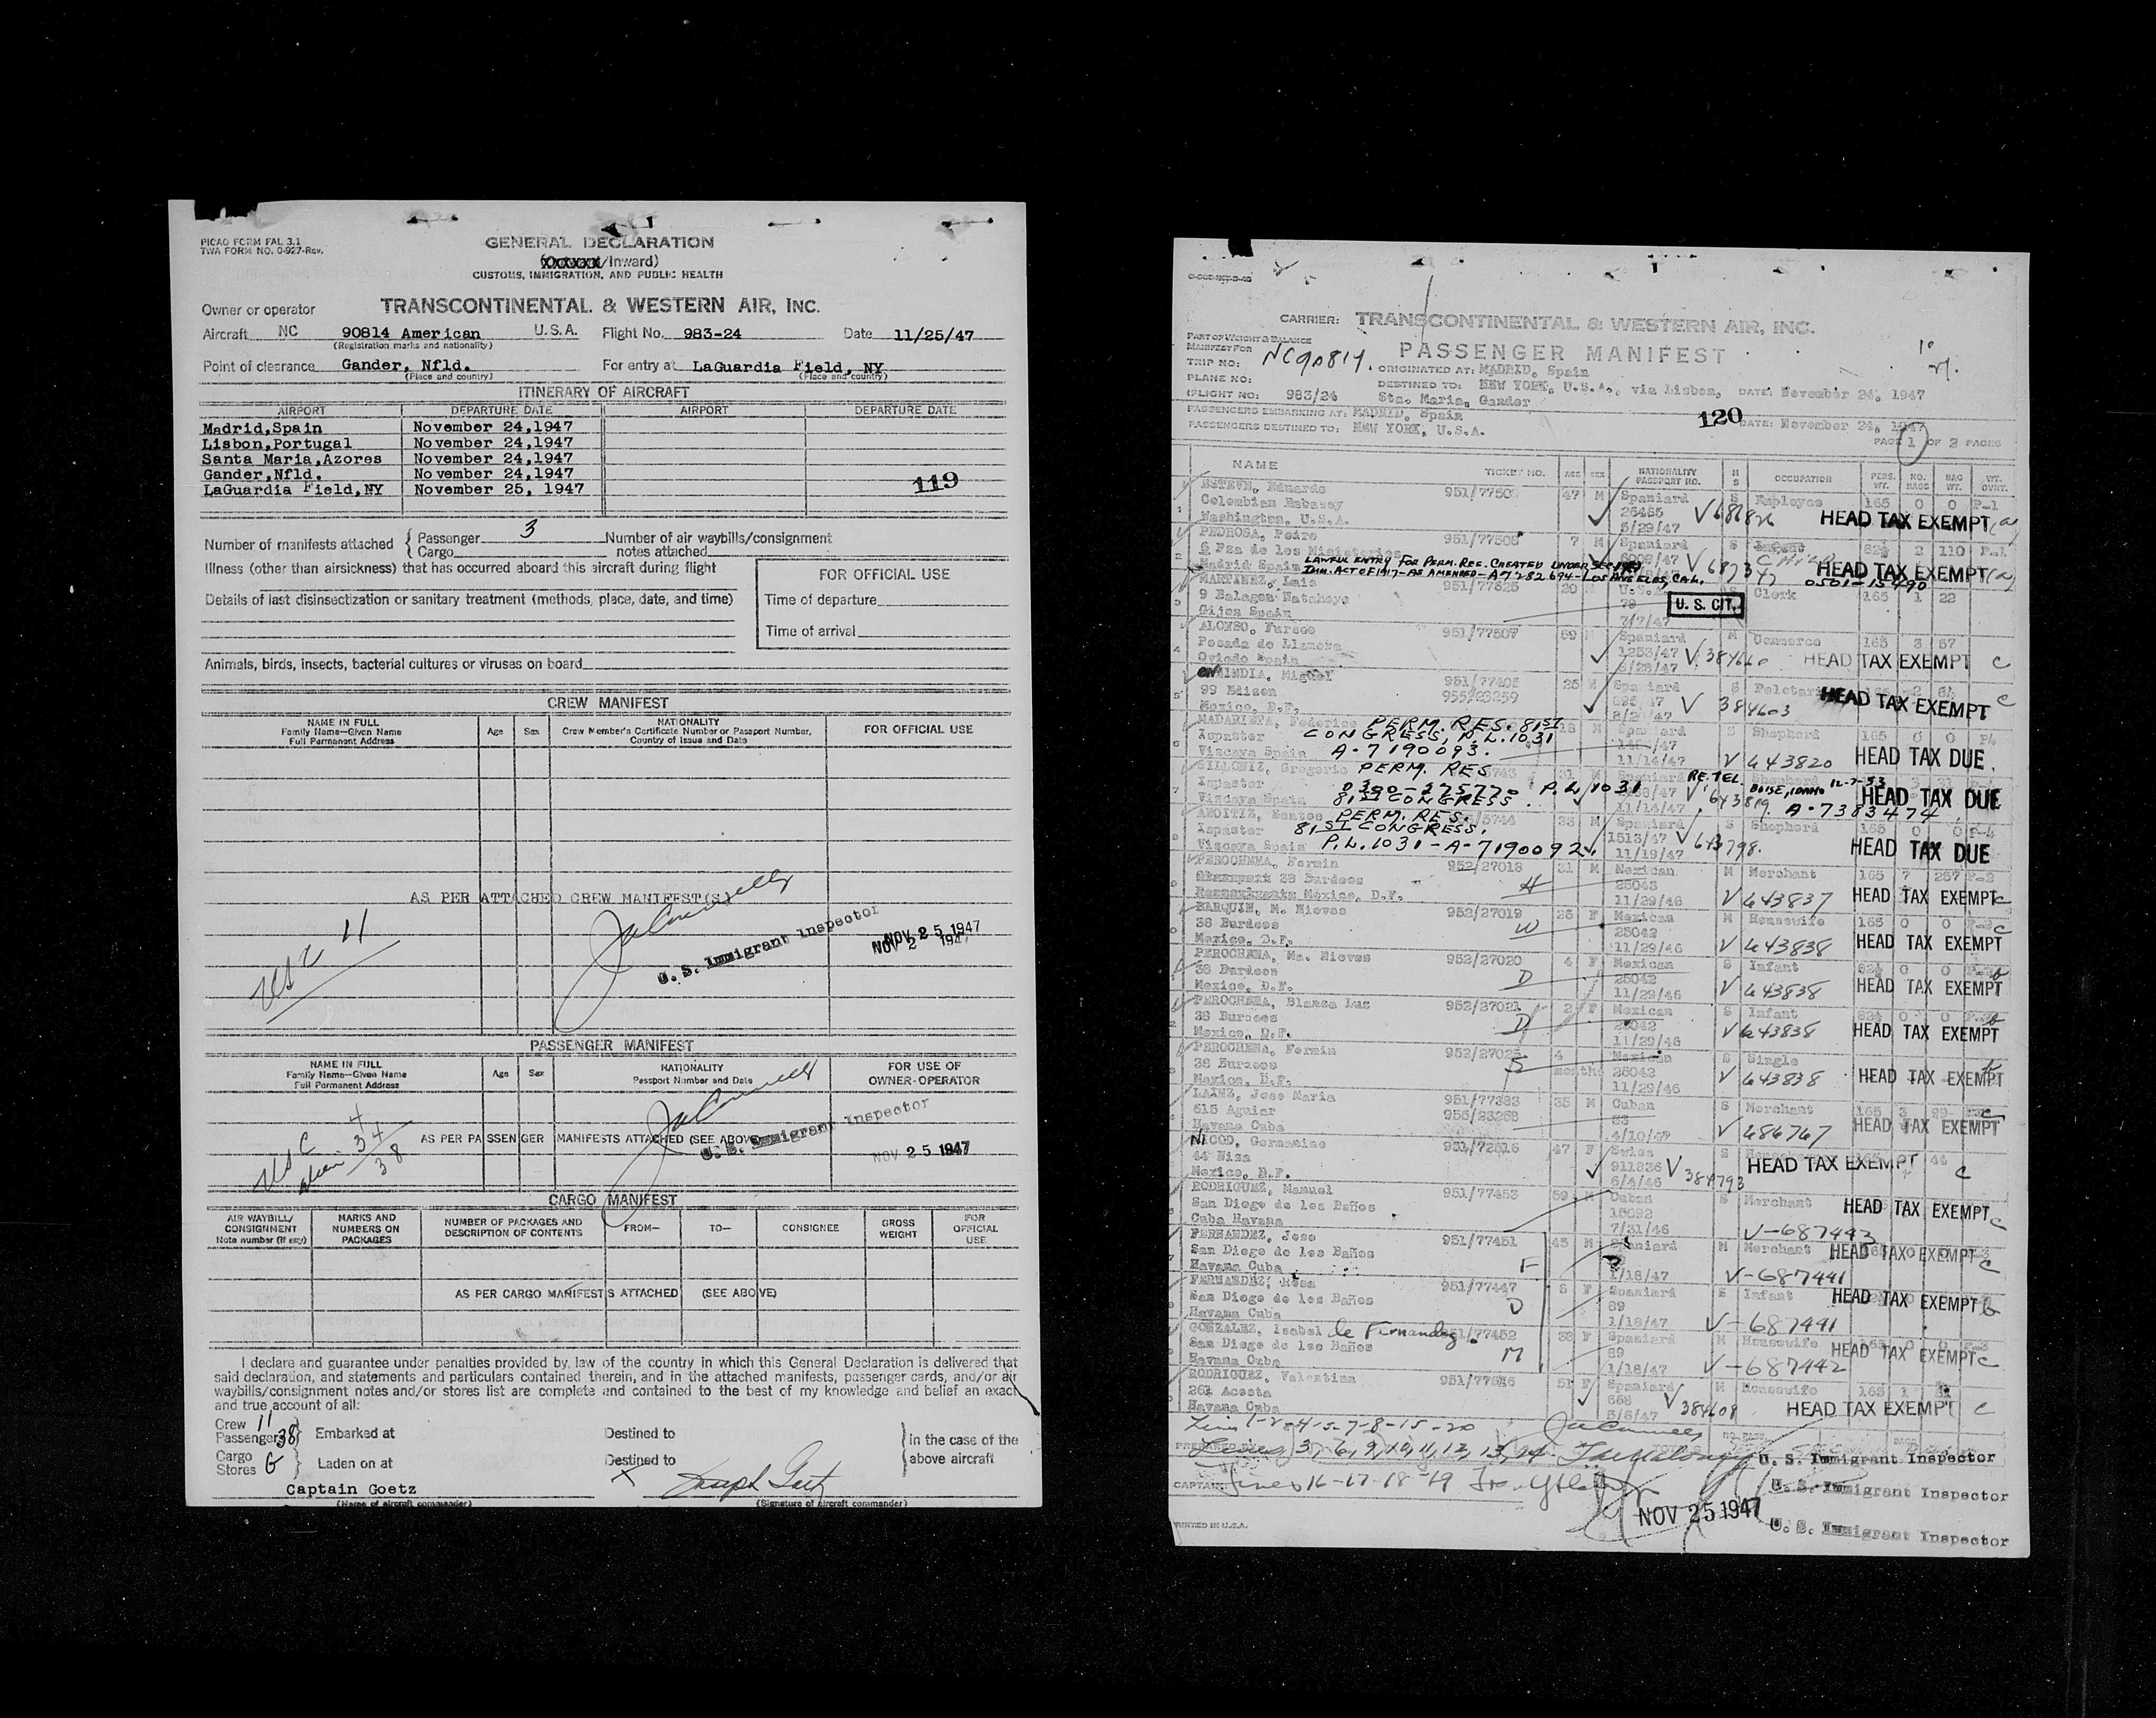 PICAO FORM FAL 3.1
TWA FORM NO. 0-927-Rev.
GENERAL DECLARATION
/Inward)
CUSTOMS, IMMIGRATION, AND PUBLIC HEALTH
Owner or operator TRANSCONTINENTAL & WESTERN AIR, INC.
Aircraft NC 90814 American U.S.A. Flight No. 983-24 Date 11/25/47
(Registration marks and nationality)
Point of clearance Gander, Nfld. For entry at LaGuardia Field, NY
(Place and country) (Place and country)
ITINERARY OF AIRCRAFT
AIRPORT DEPARTURE DATE AIRPORT DEPARTURE DATE
Madrid,Spain November 24,1947
Lisbon,Portugal November 24,1947
Santa Maria,Azores November 24,1947
Gander,Nfld. November 24,1947
LaGuardia Field,NY November 25, 1947
119
Number of manifests attached { Passenger 3 Number of air waybills/consignment
Cargo notes attached
Illness (other than airsickness) that has occurred aboard this aircraft during flight
FOR OFFICIAL USE
Details of last disinsectization or sanitary treatment (methods, place, date, and time)
Time of departure
Time of arrival
Animals, birds, insects, bacterial cultures or viruses on board
CREW MANIFEST
NAME IN FULL
Family Name—Given Name
Full Permanent Address
Age Sex
NATIONALITY
Crew Member's Certificate Number or Passport Number,
Country of Issue and Date
FOR OFFICIAL USE
AS PER ATTACHED CREW MANIFEST(S)
USC 11
U. S. Immigrant Inspector
NOV 25 1947
PASSENGER MANIFEST
NAME IN FULL
Family Name—Given Name
Full Permanent Address
Age Sex
NATIONALITY
Passport Number and Date
FOR USE OF
OWNER-OPERATOR
USC 4
Alien 34
38
AS PER PASSENGER MANIFESTS ATTACHED (SEE ABOVE)
U. S. Immigrant Inspector
NOV 25 1947
CARGO MANIFEST
AIR WAYBILL/
CONSIGNMENT
Note number (if any)
MARKS AND
NUMBERS ON
PACKAGES
NUMBER OF PACKAGES AND
DESCRIPTION OF CONTENTS
FROM— TO— CONSIGNEE
GROSS
WEIGHT
FOR
OFFICIAL
USE
AS PER CARGO MANIFESTS ATTACHED (SEE ABOVE)
I declare and guarantee under penalties provided by law of the country in which this General Declaration is delivered that
said declaration, and statements and particulars contained therein, and in the attached manifests, passenger cards, and/or air
waybills/consignment notes and/or stores list are complete and contained to the best of my knowledge and belief an exact
and true account of all:
Crew 11
Passengers 38 } Embarked at Destined to
Cargo
Stores G } Laden on at Destined to
in the case of the
above aircraft
Captain Goetz
(Name of aircraft commander) (Signature of aircraft commander)
CARRIER: TRANSCONTINENTAL & WESTERN AIR, INC.
PART OF WEIGHT & BALANCE
MANIFEST FOR
PASSENGER MANIFEST
TRIP NO: NC90814. ORIGINATED AT: MADRID, Spain
PLANE NO: DESTINED TO: NEW YORK, U.S.A., via Lisbon, DATE: November 24, 1947
(FLIGHT NO: 983/24 Sta. Maria, Gander
PASSENGERS EMBARKING AT: MADRID, Spain 120 DATE: November 24, 1947
PASSENGERS DESTINED TO: NEW YORK, U.S.A. PAGE 1 OF 2 PAGES
NAME TICKET NO. AGE SEX NATIONALITY PASSPORT NO. M S OCCUPATION PERS. WT. NO. BAGS BAG WT. WT. OVNT.
ESTEVE, Eduardo 47 M Spaniard S Employee 165 0 0 P-1
Colombian Embassy 26465 V 686826 HEAD TAX EXEMPT (a)
Washington, U.S.A. 5/29/47
PEDROSA, Pedro 951/77505 7 M Spaniard S 82½ 2 110 P-1
6 Pza de los Ministerios V 687347 HEAD TAX EXEMPT (a)
Madrid Spain
LAWFUL ENTRY FOR PERM. RES. CREATED UNDER SEC. 19(c)
IMM. ACT OF 1917-AS AMENDED-A-7282694-LOS ANGELES, CAL. 0501-15490
MARTINEZ, Luis 20 M U.S.A. S Clerk 165 1 22
79 U. S. CIT.
Gijon Spain 7/7/47
ALONSO, Fursco 951/77507 59 M Spaniard M Commerce 165 3 57
Posada de Llanera 1253/47 V 384660 HEAD TAX EXEMPT C
Oviedo Spain
ONAINDIA, Miguel 25 M Spaniard S Pelotari
99 Edison 955/23259 V 384603 HEAD TAX EXEMPT C
Mexico, D.F.
MADARIETA, Federico M Spaniard S Shepherd 165 0 0 P4
Ispaster PERM. RES. 81ST CONGRESS, P.L. 1031
Vizcaya Spain A-7190093. 11/14/47 V 643820 HEAD TAX DUE
BILLONIZ, Gregorio PERM. RES 31 M Spaniard RE.TEL. BOISE, IDAHO 12-7-53
Ispaster 0300-275770 P.L. 1031
Vizcaya Spain 81ST CONGRESS. 11/14/47 V 643819. A-7383474 HEAD TAX DUE
ABOITIZ, Santos PERM. RES. 33 M Spaniard S Shepherd 165 0 0 P-4
Ispaster 81ST CONGRESS. 1513/47 V 643798.
Vizcaya Spain P.L. 1031-A-7190092 11/19/47 HEAD TAX DUE
PEROCHENA, Fermin 952/27018 31 M Mexican M Merchant 165 7 257 P-3
38 Burdeos H 25043 V 643837 HEAD TAX EXEMPT C
Mexico, D.F. 11/29/46
BARQUIN, M. Nieves 952/27019 26 F Mexican M Housewife 165 0 0
38 Burdeos W 25042
Mexico, D.F. 11/29/46 V 643838 HEAD TAX EXEMPT C
PEROCHENA, Ma. Nieves 952/27020 4 F Mexican S Infant 82½ 0 0
38 Burdeos D 25042
Mexico, D.F. 11/29/46 V 643838 HEAD TAX EXEMPT
PEROCHENA, Blanca Luz 952/27021 2 F Mexican S Infant 0 0
38 Burdeos D 25042
Mexico, D.F. 11/29/46 V 643838 HEAD TAX EXEMPT
PEROCHENA, Fermin 4 Mexican S Single
38 Burdeos S months 25042
Mexico, D.F. 11/29/46 V 643838 HEAD TAX EXEMPT
LAINZ, Jose Maria 951/77383 35 M Cuban S Merchant 165 3 99
515 Aguiar 955/23268
Havana Cuba 4/10/47 V 686767 HEAD TAX EXEMPT C
NICOD, Germanine 951/72516 47 F Swiss
44 Niza 911836 V 384793 HEAD TAX EXEMPT C
Mexico, D.F. 6/4/46
RODRIGUEZ, Manuel 951/77453 59 M Cuban S Merchant
San Diego de los Baños HEAD TAX EXEMPT C
Cuba Havana 7/31/46 V-687443
FERNANDEZ, Jose 951/77451 45 M Spaniard M Merchant HEAD TAX EXEMPT C
San Diego de los Baños
Havana Cuba F 1/18/47 V-687441
FERNANDEZ, Rosa 951/77447 5 F Spaniard S Infant HEAD TAX EXEMPT
San Diego de los Baños 89
Havana Cuba D 1/18/47 V-687441
GONZALEZ, Isabel de Fernandez 33 F Spaniard M Housewife HEAD TAX EXEMPT C
San Diego de los Baños 89
Havana Cuba M 1/18/47 V-687442
RODRIGUEZ, Valentina 51 F Spaniard M Housewife 165 1
261 Acosta 668 V 384608 HEAD TAX EXEMPT C
Havana Cuba 5/6/47
Line 1-2-4-5-7-8-15-20
Lines 3, 6, 9, 10, 11, 12, 13, 14
U. S. Immigrant Inspector
Lines 16-17-18-19
U. S. Immigrant Inspector
NOV 25 1947
U. S. Immigrant Inspector
PRINTED IN U.S.A.